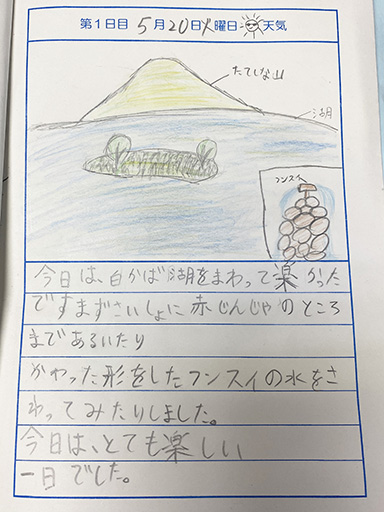 第1日目 5月20日火曜日 天気
たてしな山
湖
フンスイ
今日は、白かば湖をまわって楽かった
ですまずさいしょに赤じんじゃのところ
まであるいたり
かわった形をしたフンスイの水をさ
わってみたりしました。
今日は、とても楽しい
一日でした。